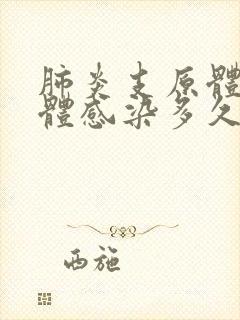 肺炎支原體
體感染多久
西施